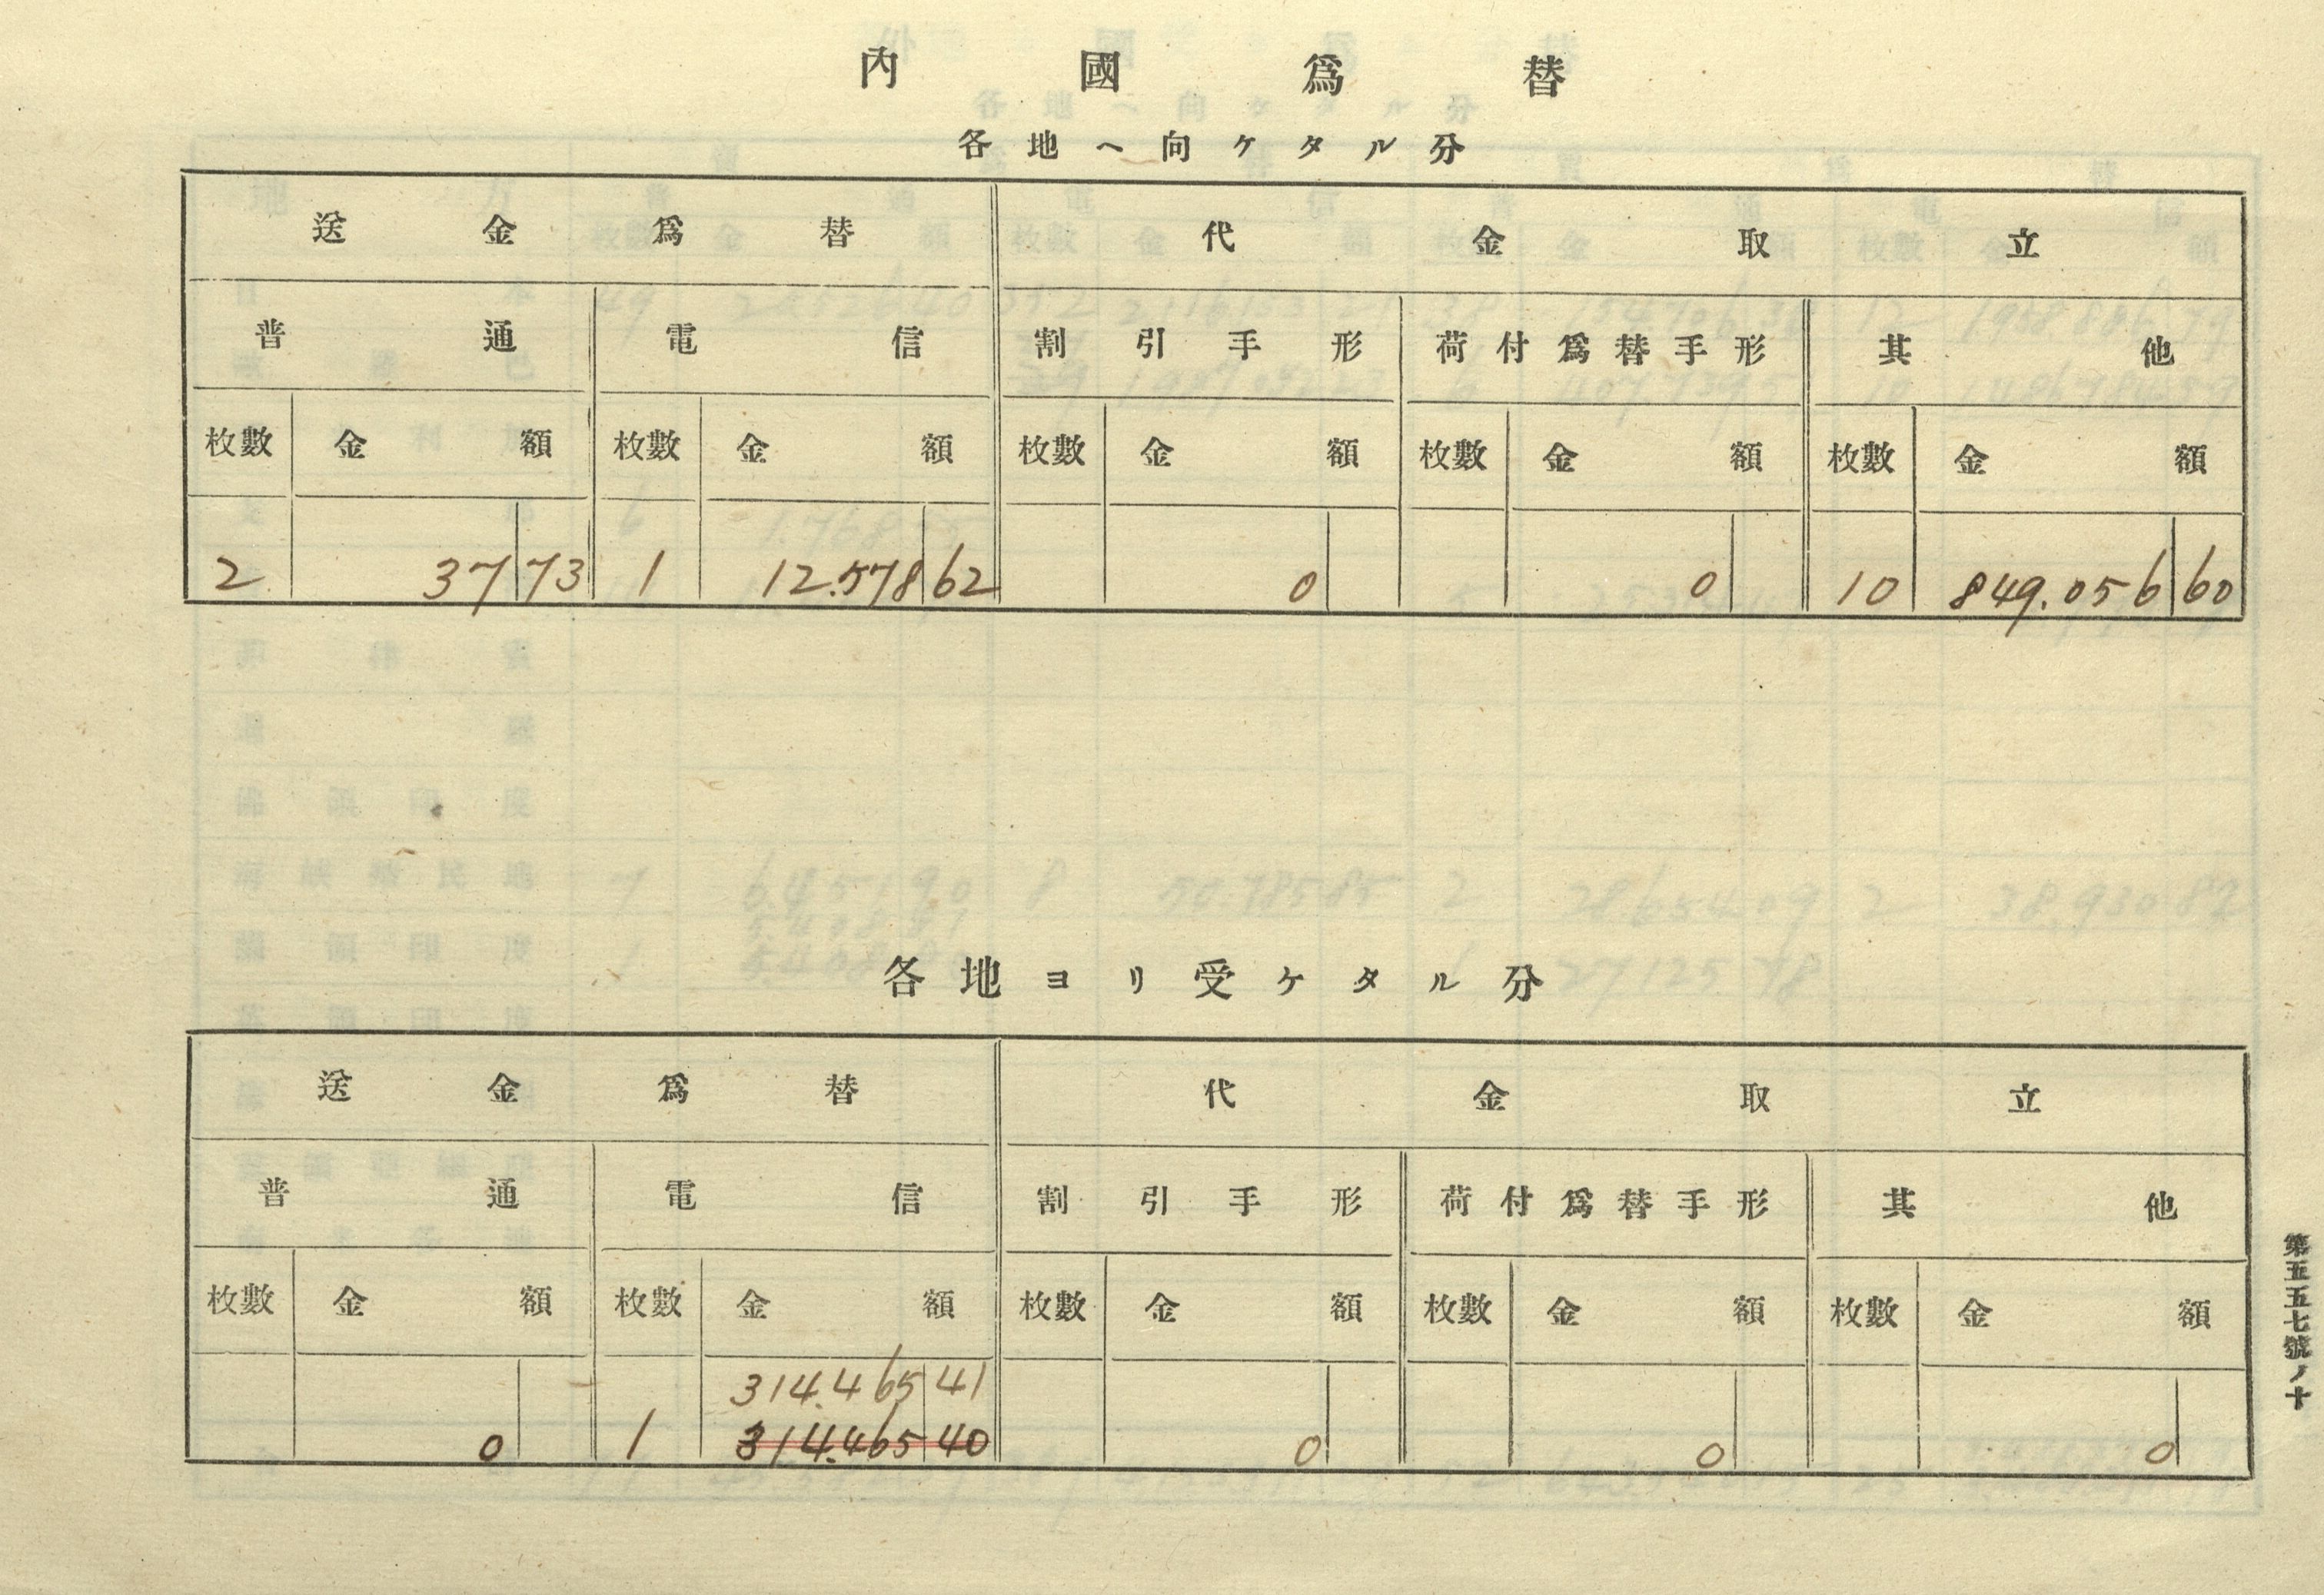 內國爲替
各地ヘ向ケタル分
送金爲替 代金取立
普通 電信 割引手形 荷付爲替手形 其他
枚數 金額 枚數 金額 枚數 金額 枚數 金額 枚數 金額
2 37 73 1 12.578 62 0 0 10 849.056 60
各地ヨリ受ケタル分
送金爲替 代金取立
普通 電信 割引手形 荷付爲替手形 其他
枚數 金額 枚數 金額 枚數 金額 枚數 金額 枚數 金額
314.465 41
0 1 314.465 40 0 0 0
第五五七號ノ十